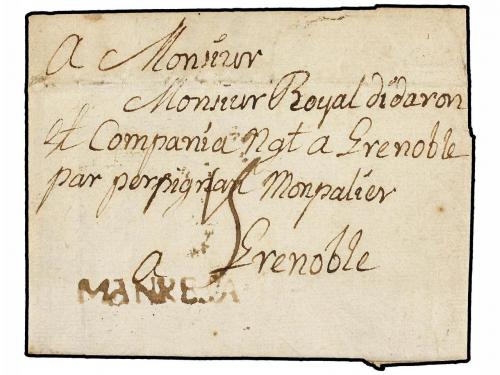 A Monsiur
Monsiur Royal didaron
et Compania Ngt a Grenoble
par perpignan Monpalier
a Grenoble
MANRESA